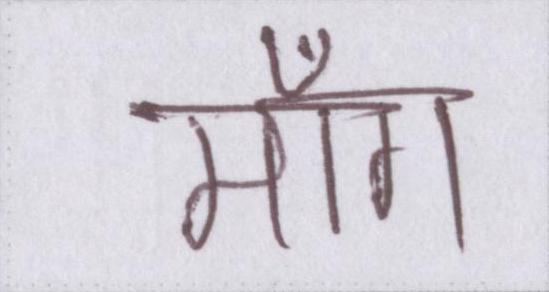 माँग